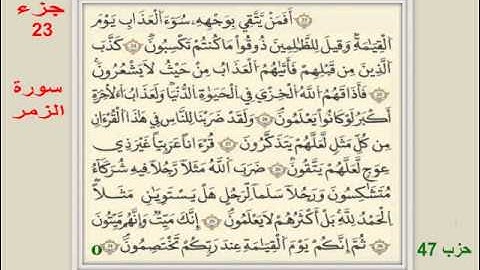 جزء
23
سورة
الزمر
أَفَمَن يَتَّقِي بِوَجْهِهِ سُوءَ الْعَذَابِ يَوْمَ
الْقِيَامَةِ وَقِيلَ لِلظَّالِمِينَ ذُوقُوا مَا كُنتُمْ تَكْسِبُونَ ٢٤ كَذَّبَ
الَّذِينَ مِن قَبْلِهِمْ فَأَتَاهُمُ الْعَذَابُ مِنْ حَيْثُ لَا يَشْعُرُونَ
٢٥ فَأَذَاقَهُمُ اللَّهُ الْخِزْيَ فِي الْحَيَوٰةِ الدُّنْيَا وَلَعَذَابُ الْآخِرَةِ
أَكْبَرُ لَوْ كَانُوا يَعْلَمُونَ ٢٦ وَلَقَدْ ضَرَبْنَا لِلنَّاسِ فِي هَٰذَا الْقُرْءَانِ
مِن كُلِّ مَثَلٍ لَّعَلَّهُمْ يَتَذَكَّرُونَ ٢٧ قُرْءَانًا عَرَبِيًّا غَيْرَ ذِي
عِوَجٍ لَّعَلَّهُمْ يَتَّقُونَ ٢٨ ضَرَبَ اللَّهُ مَثَلًا رَّجُلًا فِيهِ شُرَكَاءُ
مُتَشَاكِسُونَ وَرَجُلًا سَلَمًا لِّرَجُلٍ هَلْ يَسْتَوِيَانِ مَثَلًا
الْحَمْدُ لِلَّهِ بَلْ أَكْثَرُهُمْ لَا يَعْلَمُونَ ٢٩ إِنَّكَ مَيِّتٌ وَإِنَّهُم مَّيِّتُونَ
٣٠ ثُمَّ إِنَّكُمْ يَوْمَ الْقِيَامَةِ عِندَ رَبِّكُمْ تَخْتَصِمُونَ ٣١
حزب 47